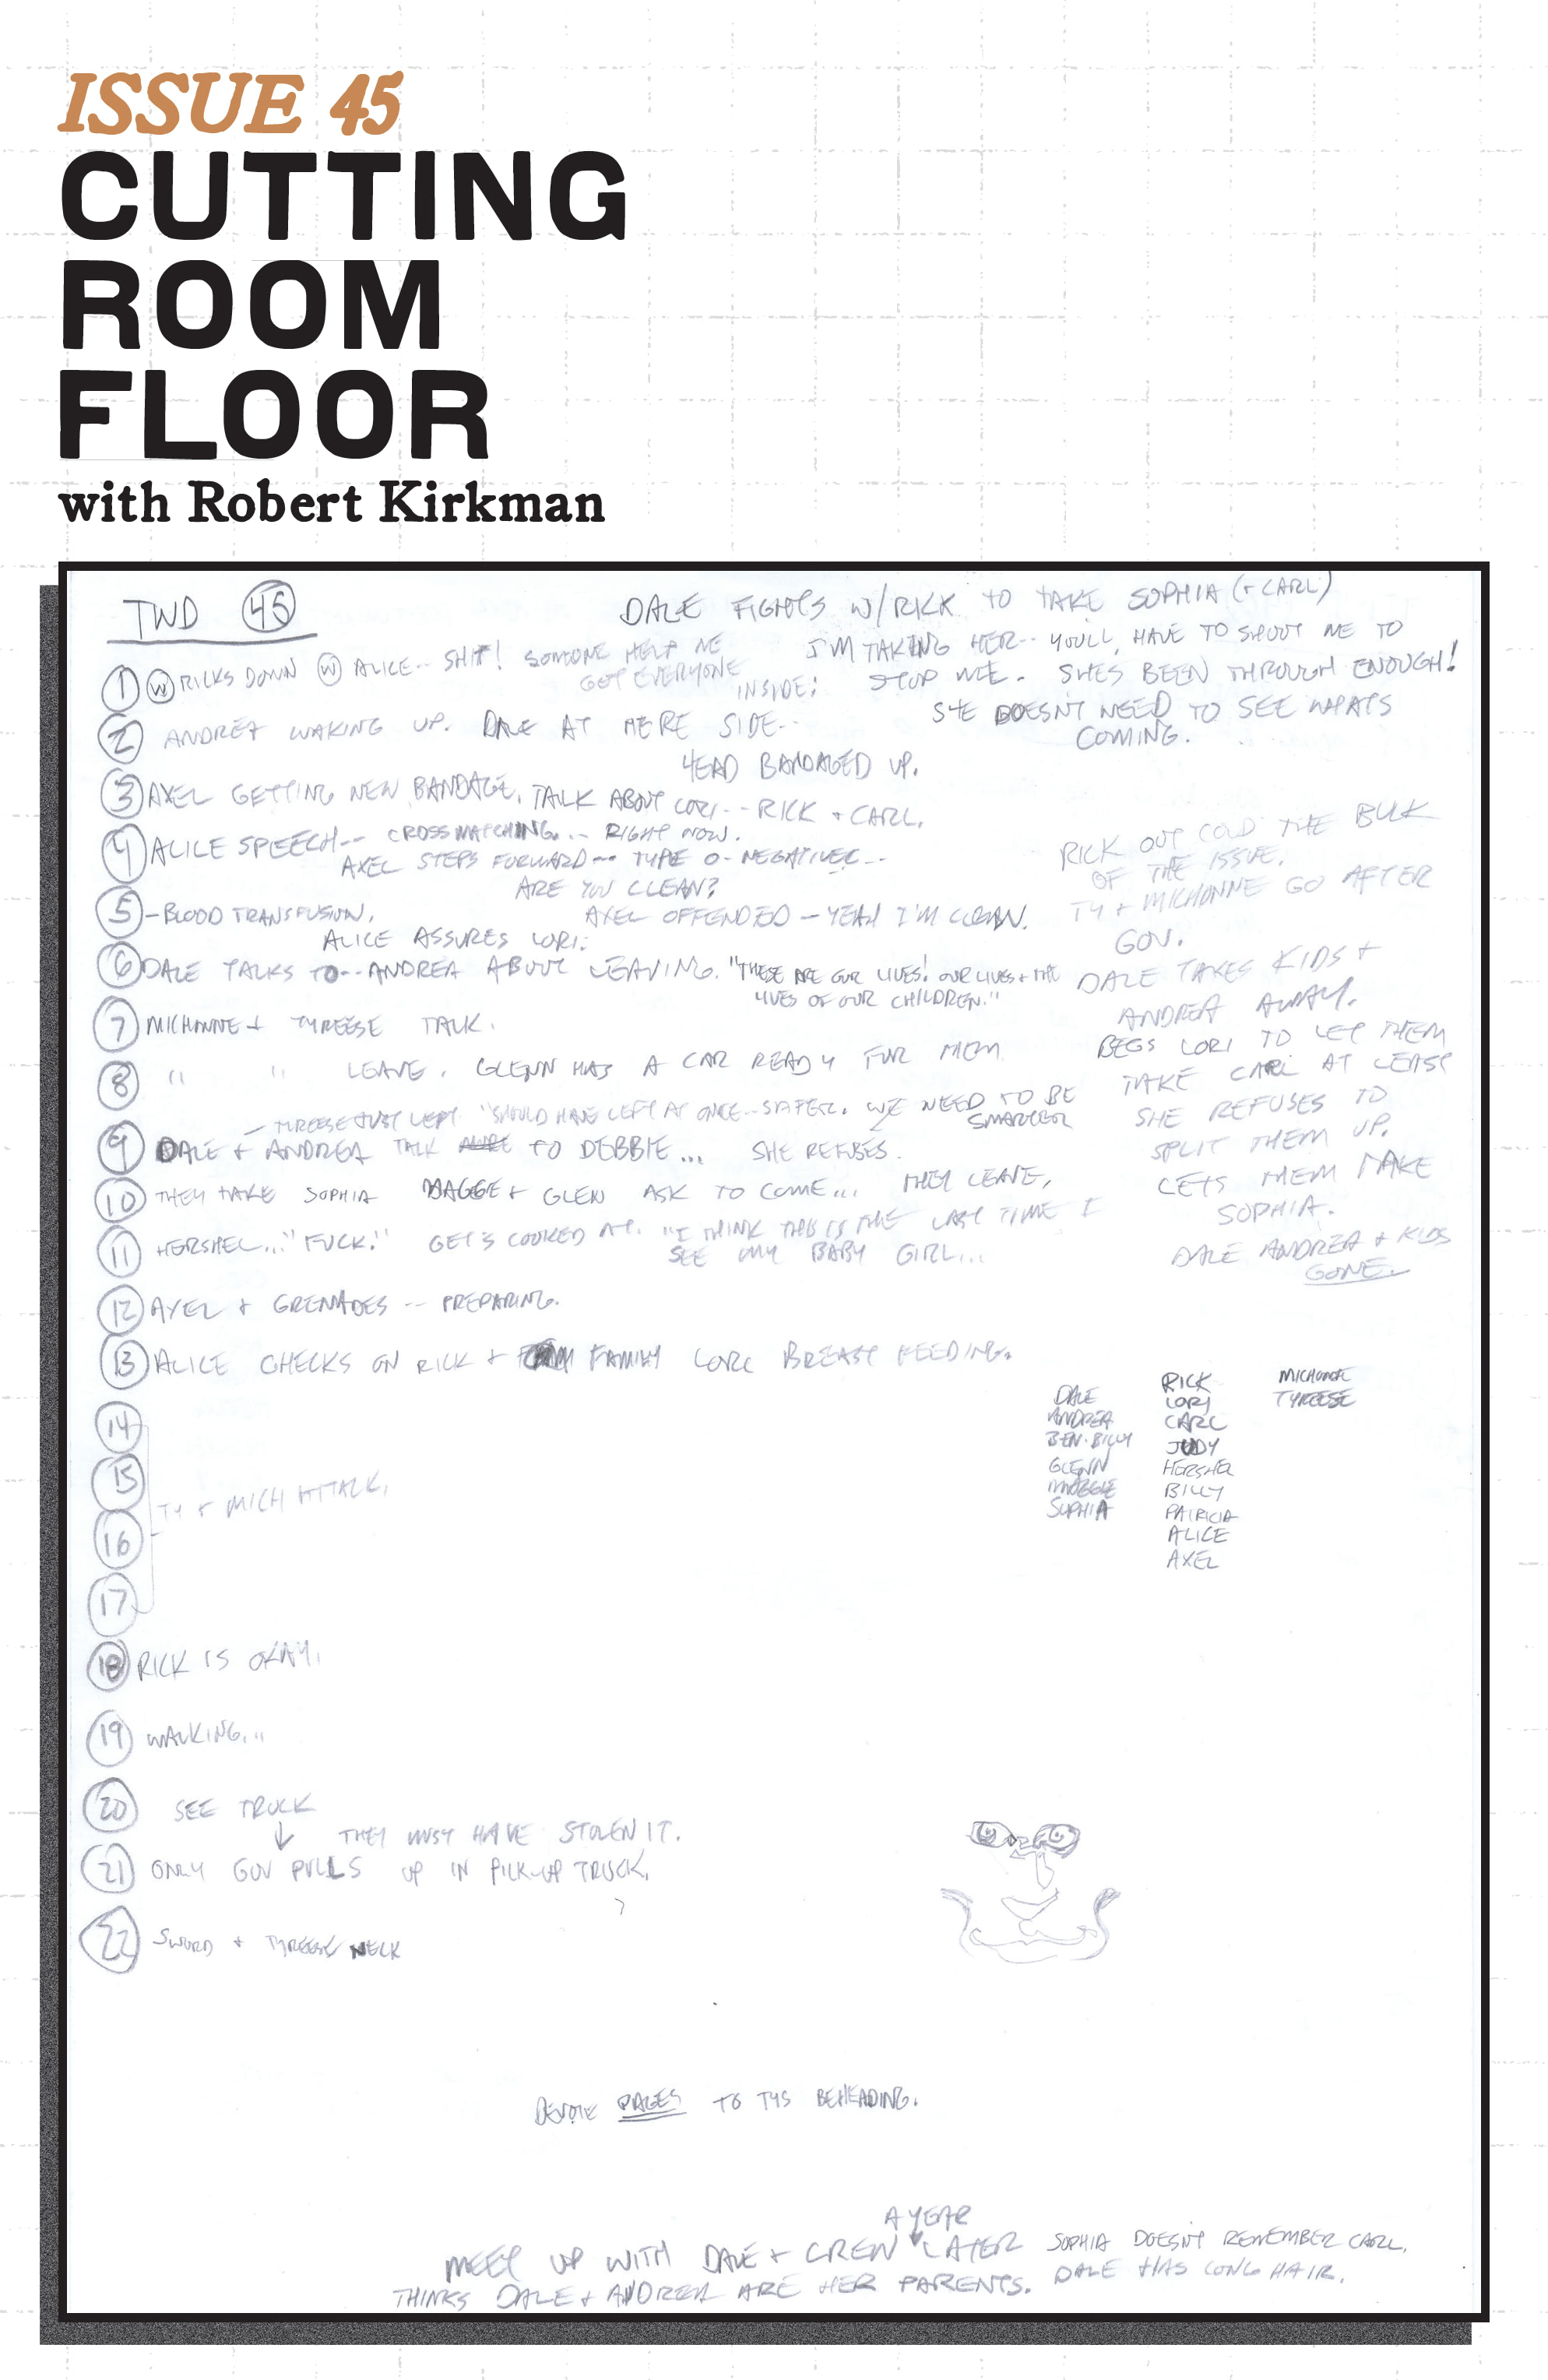 ISSUE 45
CUTTING
ROOM
FLOOR
with Robert Kirkman
TWD 45
DALE FIGHTS W/RICK TO TAKE SOPHIA (+ CARL)
I'M TAKING HER-- YOU'LL HAVE TO SHOOT ME TO
STOP ME. SHES BEEN THROUGH ENOUGH!
SHE DOESN'T NEED TO SEE WHATS
COMING.
1 W RICKS DOWN W ALICE-- SHIT! SOMEONE HELP ME
GET EVERYONE
INSIDE!
2 ANDREA WAKING UP. DALE AT HERE SIDE--
HEAD BANDAGED UP.
3 AXEL GETTING NEW BANDAGE. TALK ABOUT LORI-- RICK + CARL.
4 ALICE SPEECH-- CROSSMATCHING... RIGHT NOW.
AXEL STEPS FORWARD-- TYPE O- NEGATIVE--
ARE YOU CLEAN?
5 -BLOOD TRANSFUSION. AXEL OFFENDED - YEAH I'M CLEAN.
ALICE ASSURES LORI.
6 DALE TALKS TO-- ANDREA ABOUT LEAVING. "THESE ARE OUR LIVES! OUR LIVES + THE
LIVES OF OUR CHILDREN."
7 MICHONNE + TYREESE TALK.
8 " " LEAVE. GLENN HAS A CAR READY FOR THEM
- TYREESE JUST LEFT. "SHOULD HAVE LEFT AT ONCE-- SAFER. WE NEED TO BE
SMARTER
9 DALE + ANDREA TALK TO DEBBIE... SHE REFUSES.
10 THEY TAKE SOPHIA MAGGE + GLEN ASK TO COME... THEY LEAVE.
11 HERSHEL..."FUCK." GET'S LOOKED AT. "I THINK THIS IS THE LAST TIME I
SEE MY BABY GIRL...
12 AXEL + GRENADES -- PREPARING.
13 ALICE CHECKS ON RICK + FAMILY LORI BREAST FEEDING.
14
15
TY + MICH ATTALK.
16
17
18 RICK IS OKAY.
19 WALKING...
20 SEE TRUCK
↓ THEY MUST HAVE STOLEN IT.
21 ONLY GOV PULLS UP IN PICK-UP TRUCK.
22 SWORD + TYREESE NECK
RICK OUT COLD THE BULK
OF THE ISSUE.
TY + MICHONNE GO AFTER
GOV.
DALE TAKES KIDS +
ANDREA AWAY.
BEGS LORI TO LET THEM
TAKE CARL AT LEAST
SHE REFUSES TO
SPLIT THEM UP.
LETS THEM TAKE
SOPHIA.
DALE ANDREA + KIDS
GONE.
DALE
ANDREA
BEN-BILLY
GLENN
MAGGIE
SOPHIA
RICK
LORI
CARL
JUDY
HERSHEL
BILLY
PATRICIA
ALICE
AXEL
MICHONNE
TYREESE
DEVOTE PAGES TO TYS BEHEADING.
A YEAR
MEET UP WITH DALE + CREW LATER SOPHIA DOESN'T REMEMBER CARL.
THINKS DALE + ANDREA ARE HER PARENTS. DALE HAS LONG HAIR.